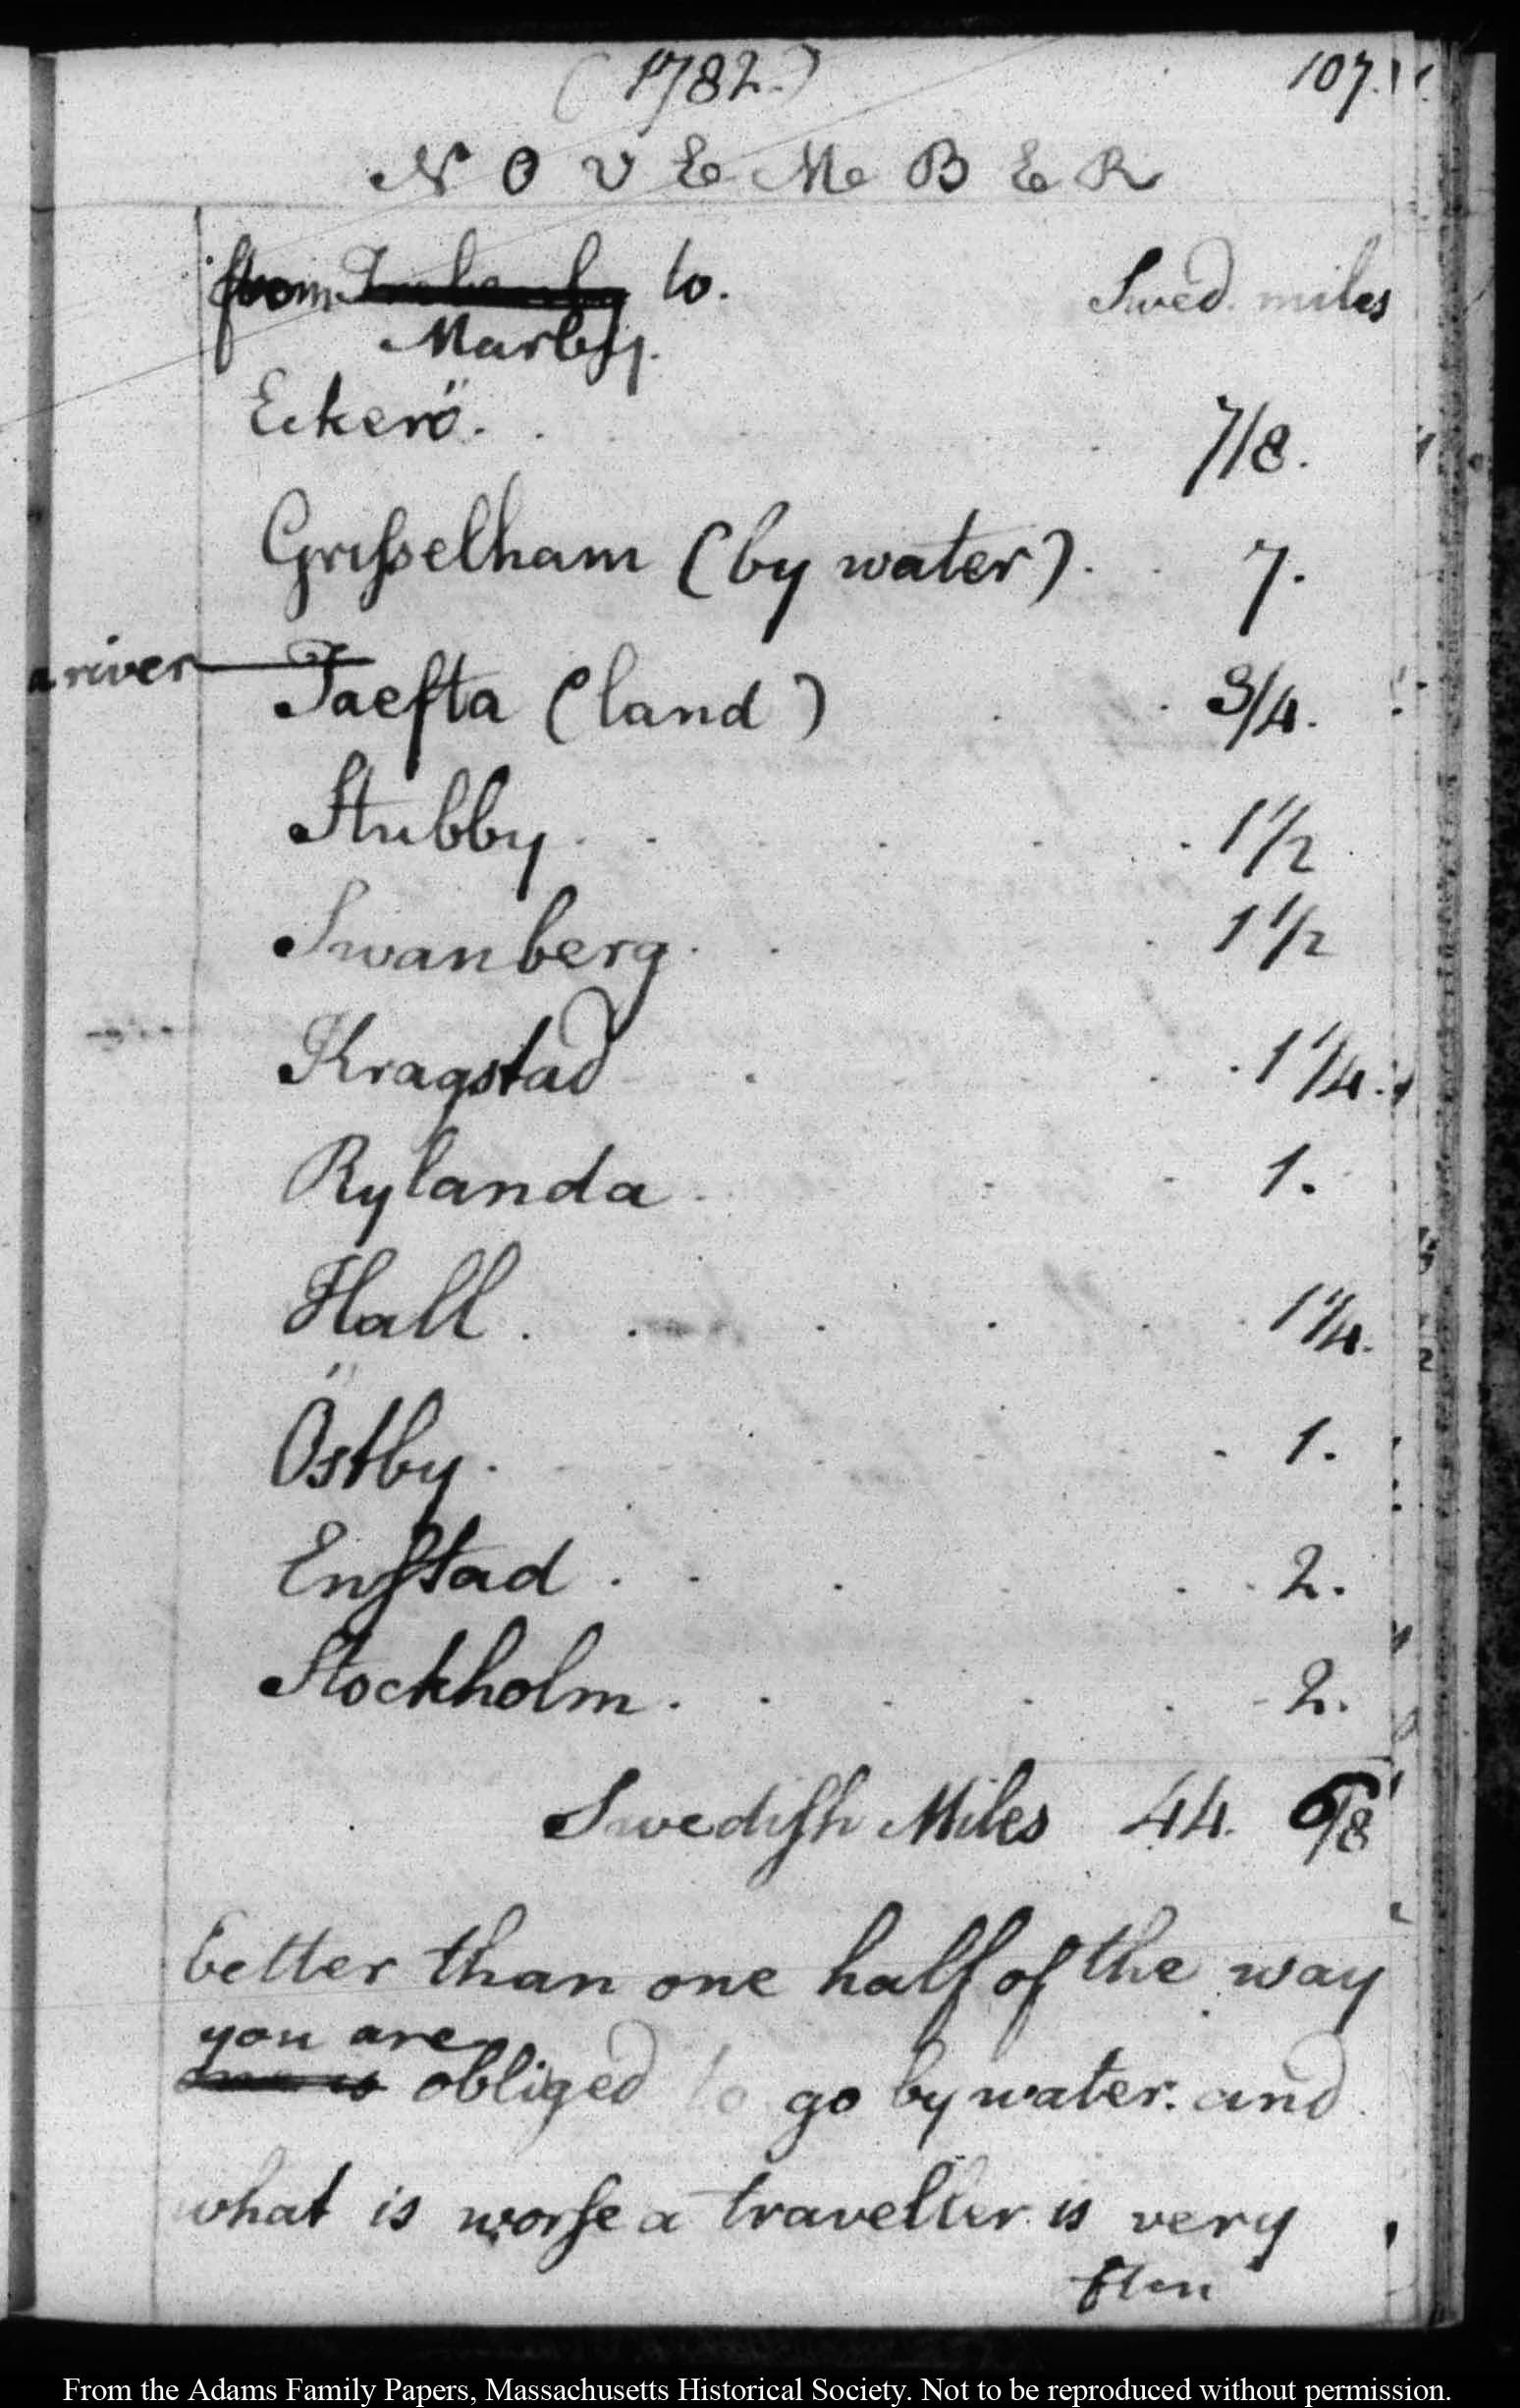 (1782.) 107.
NOVEMBER
from to. Swed. miles
Marby.
Eckerö. 7/8.
Grisselham (by water). 7.
a river Taefta (land) 3/4.
Stubby 1 1/2
Swanberg. 1 1/2
Kragstad 1 1/4.
Rylanda 1.
Hall. 1 1/4.
Östby. 1.
Enstad. 2.
Stockholm. 2.
Swedish Miles 44. 6/8
better than one half of the way
you are
one is obliged to go by water. and
what is worse a traveller is very
ften
From the Adams Family Papers, Massachusetts Historical Society. Not to be reproduced without permission.